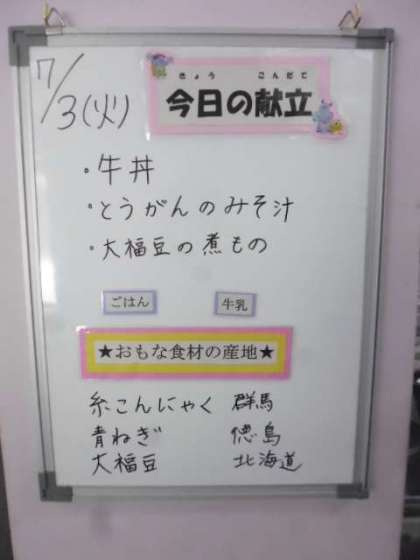 7/3(火)
きょう こんだて
今日の献立
・牛丼
・とうがんのみそ汁
・大福豆の煮もの
ごはん 牛乳
★おもな食材の産地★
糸こんにゃく 群馬
青ねぎ 徳島
大福豆 北海道